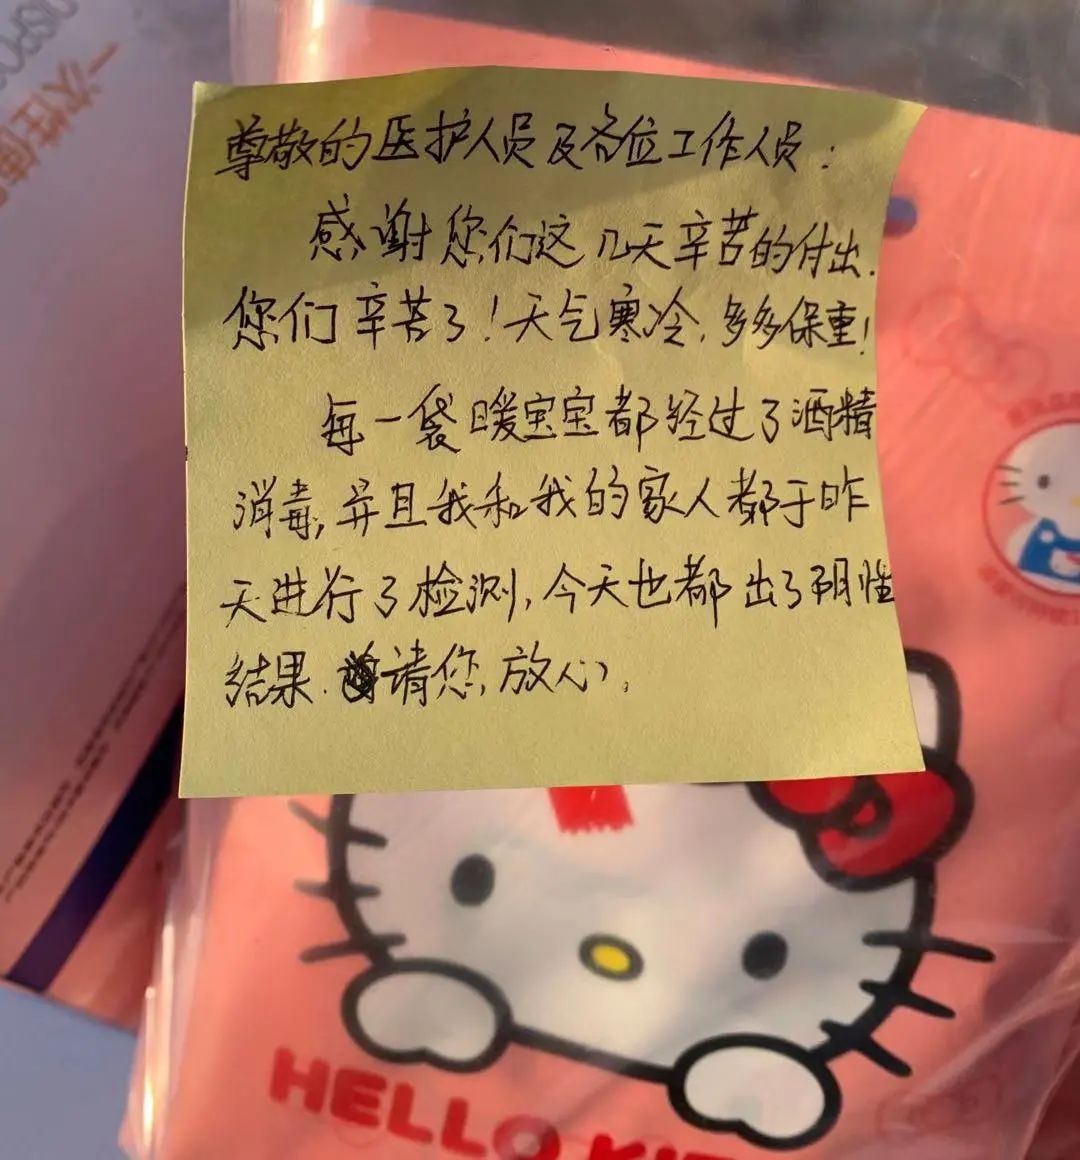 尊敬的医护人员及各位工作人员:
感谢您们这几天辛苦的付出.
您们辛苦了!天气寒冷,多多保重!
每一袋暖宝宝都经过了酒精
消毒,并且我和我的家人都于昨
天进行了检测,今天也都出了阴性
结果.请您,放心.
一次性使
HELLO KI